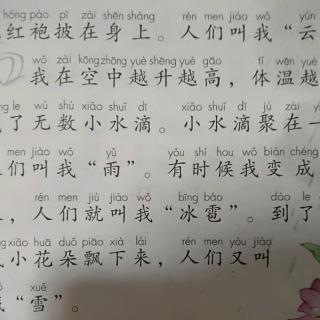 hóng páo pī zài shēn shàng rén men jiào wǒ yún
红袍披在身上。人们叫我“云
wǒ zài kōngzhōng yuè shēng yuè gāo tǐ wēn yuè
我在空中越升越高，体温越
le wú shù xiǎo shuǐ dī xiǎo shuǐ dī jù zài yì
了无数小水滴。小水滴聚在一
men jiào wǒ yǔ yǒu shí hou wǒ biàn chéng
们叫我“雨”。有时候我变成
rén men jiù jiào wǒ bīng báo dào le
，人们就叫我“冰雹”。到了
xiǎo huā duǒ piāo xià lái rén men yòu jiào
小花朵飘下来，人们又叫
xuě
我“雪”。